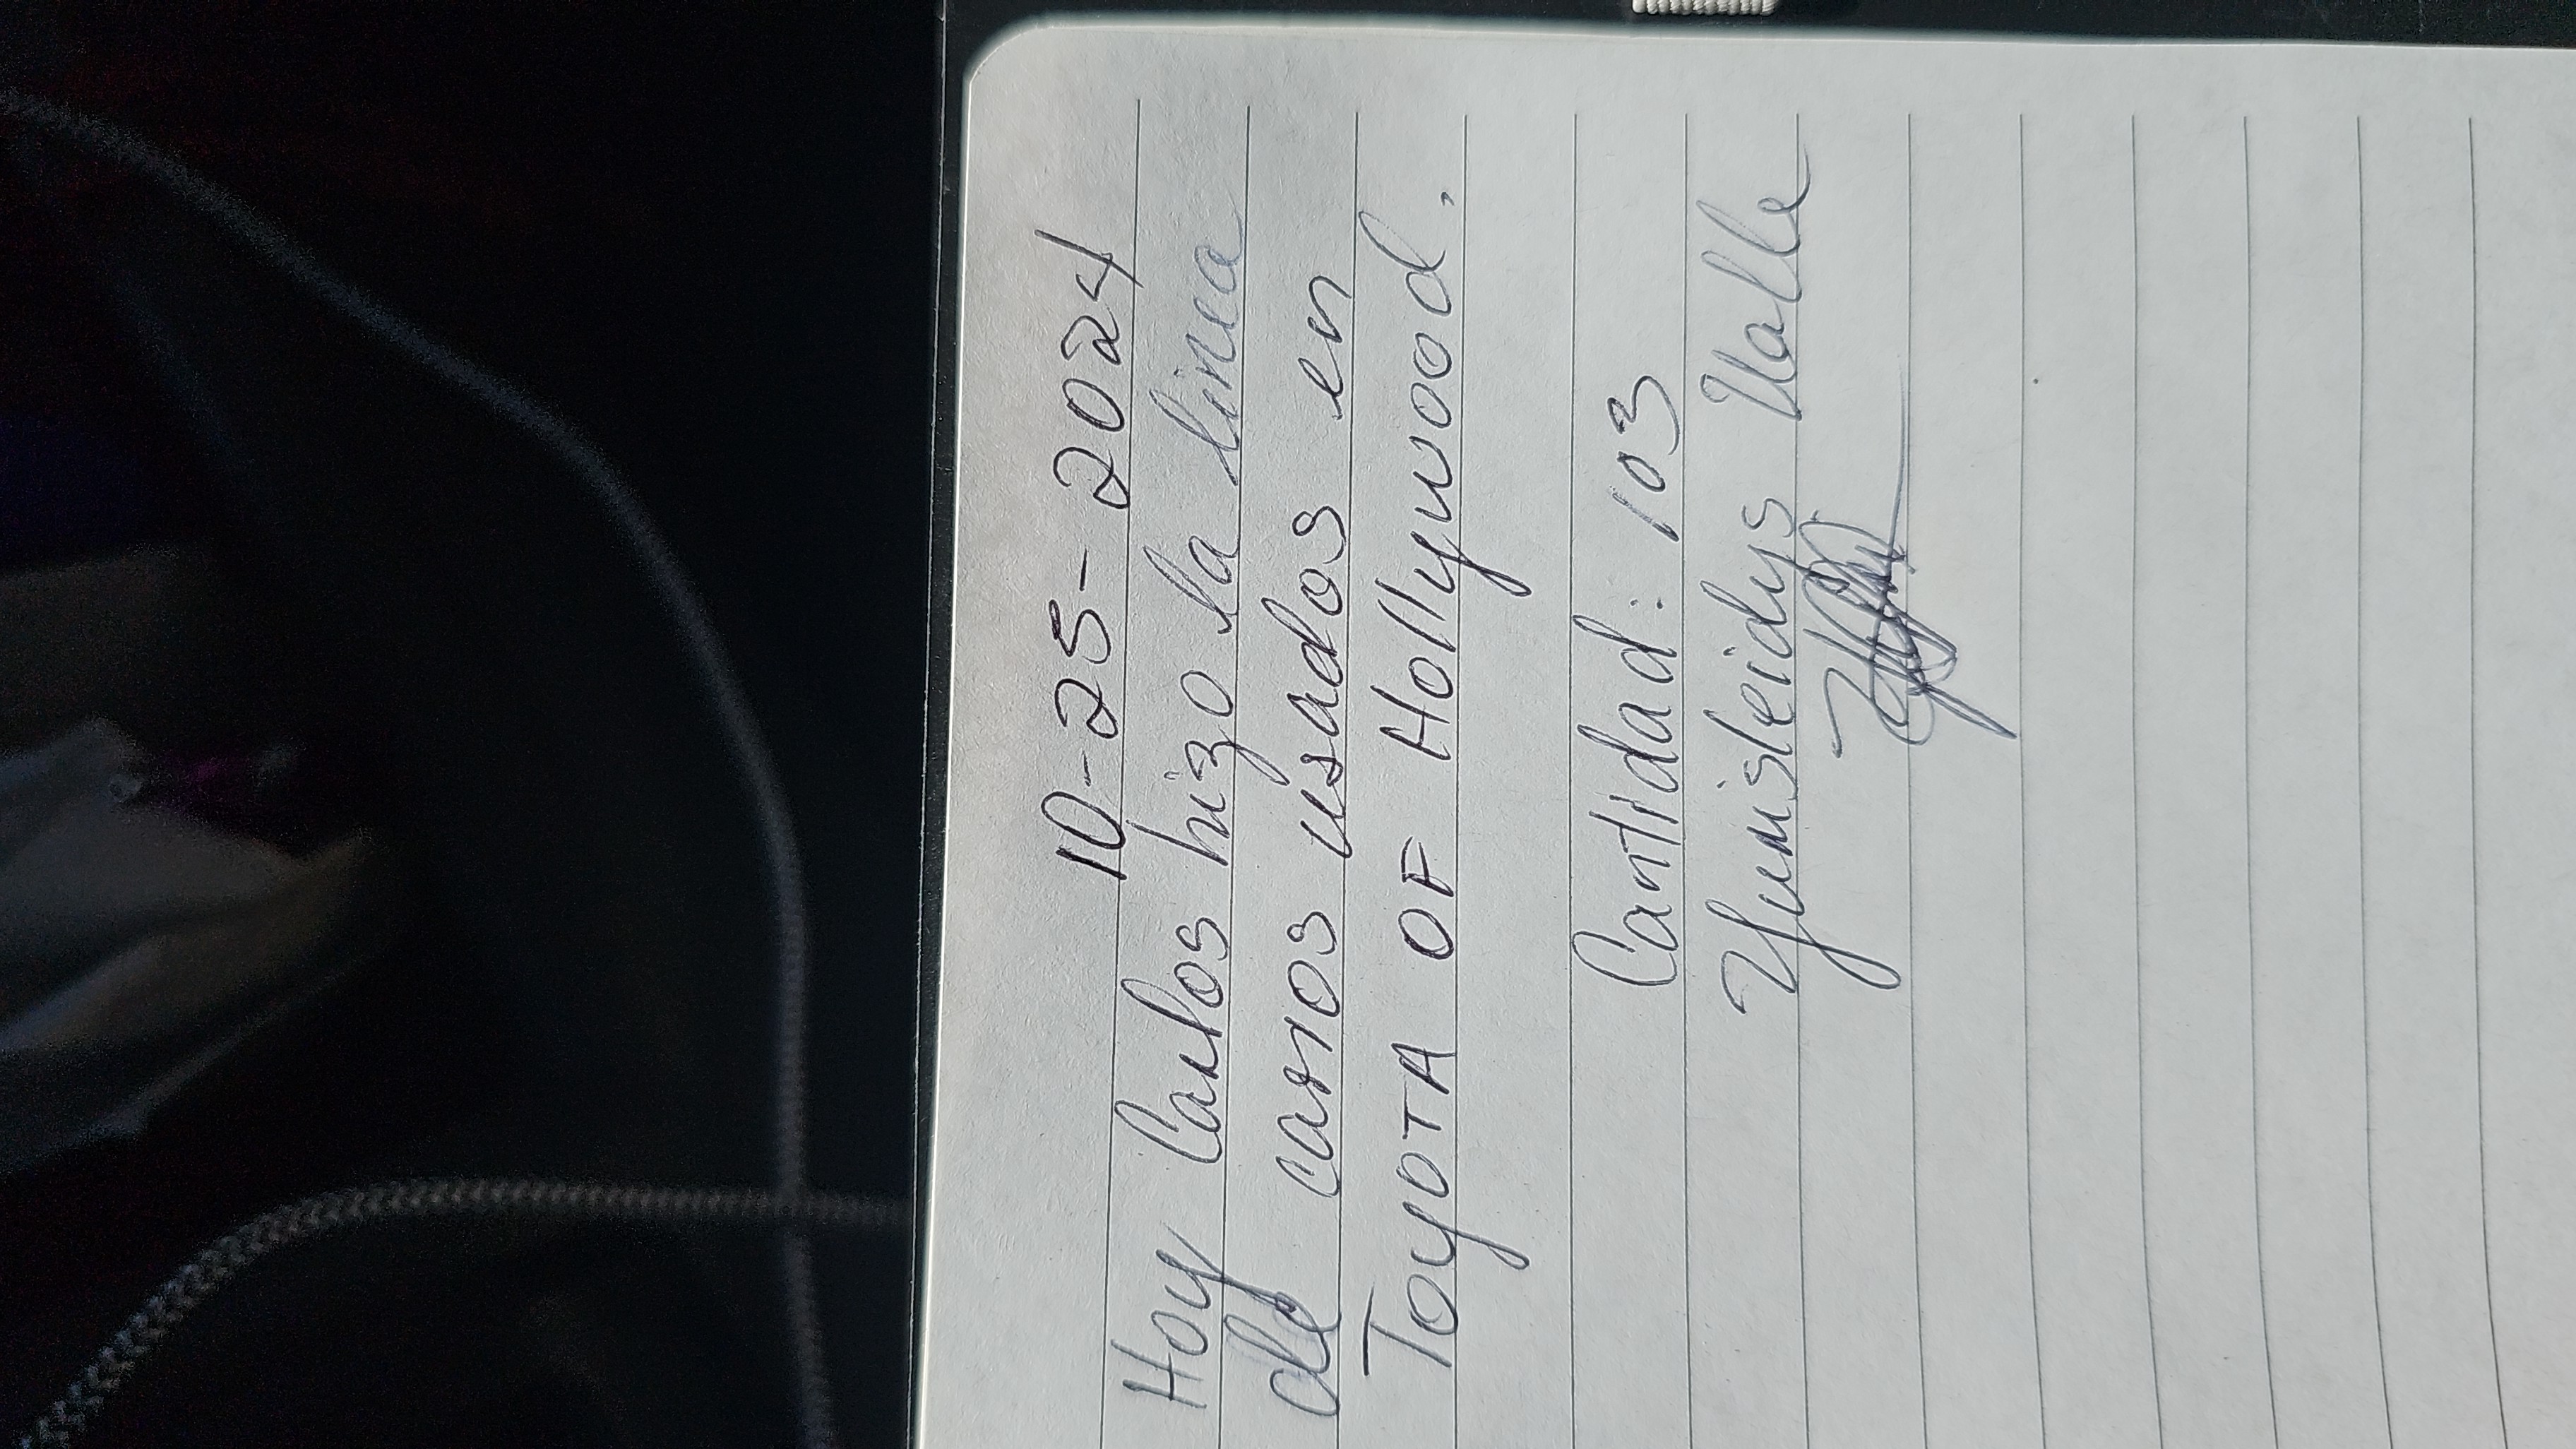 10-25-2024
Hoy Carlos hizo la linea
de carros usados en
TOYOTA OF Hollywood.
Cantidad: 103
Yumisleidys Valle